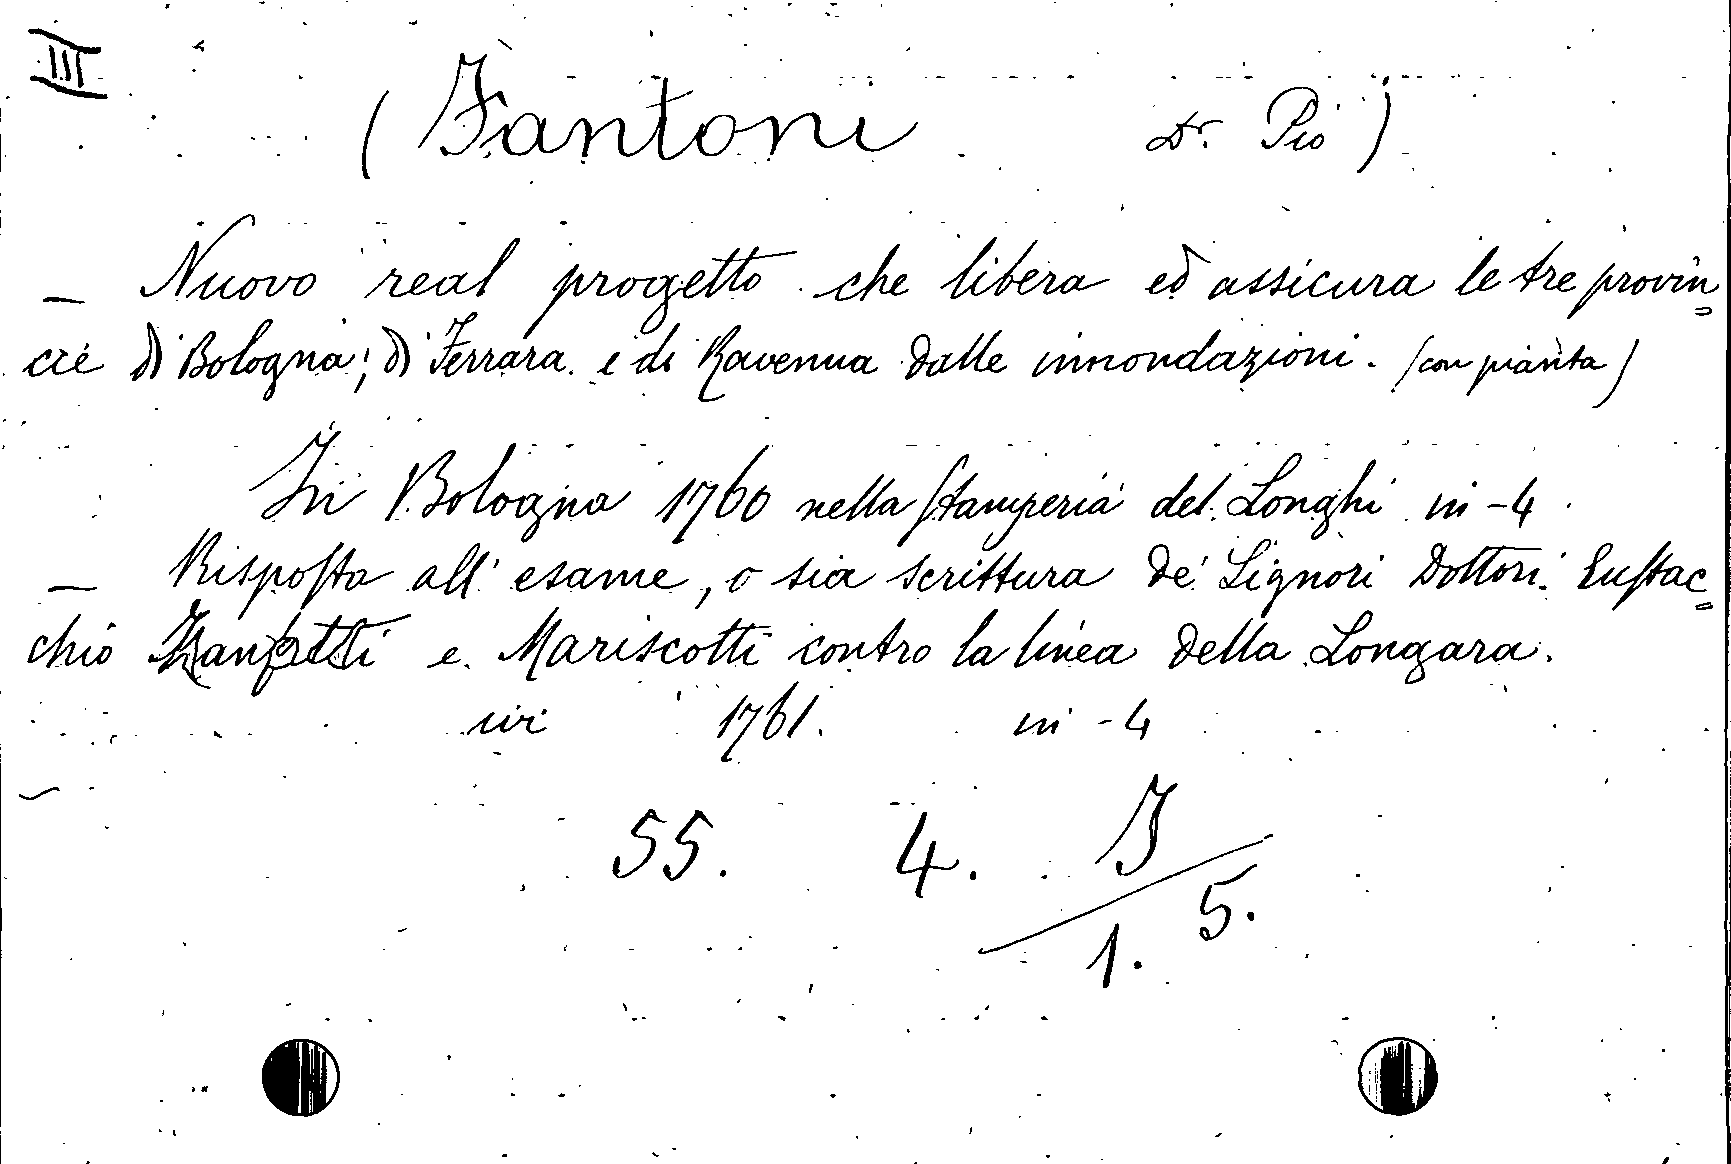 III
(Fantoni Dr. Pio)
— Nuovo real progetto che libera ed assicura le tre provin=
cie di Bologna, di Ferrara e di Ravenna dalle innondazioni. (con pianta)
In Bologna 1760 nella Stamperia del Longhi in-4
— Risposta all' esame, o sia scrittura de' Signori Dottori Eustac=
chio Zanfretti e Mariscotti contro la linea della Longara.
ivi 1761. in-4
55. 4. I
1. 5.